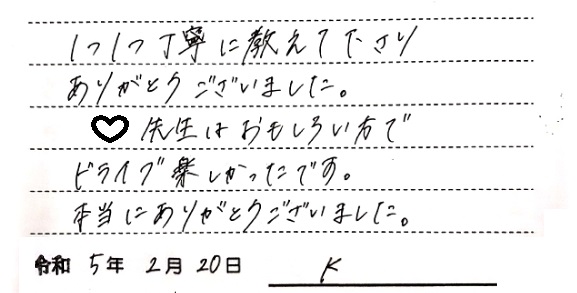 1つ1つ丁寧に教えて下さり
ありがとうございました。
♡先生はおもしろい方で
ドライブ楽しかったです。
本当にありがとうございました。
令和 5年 2月 20日 K